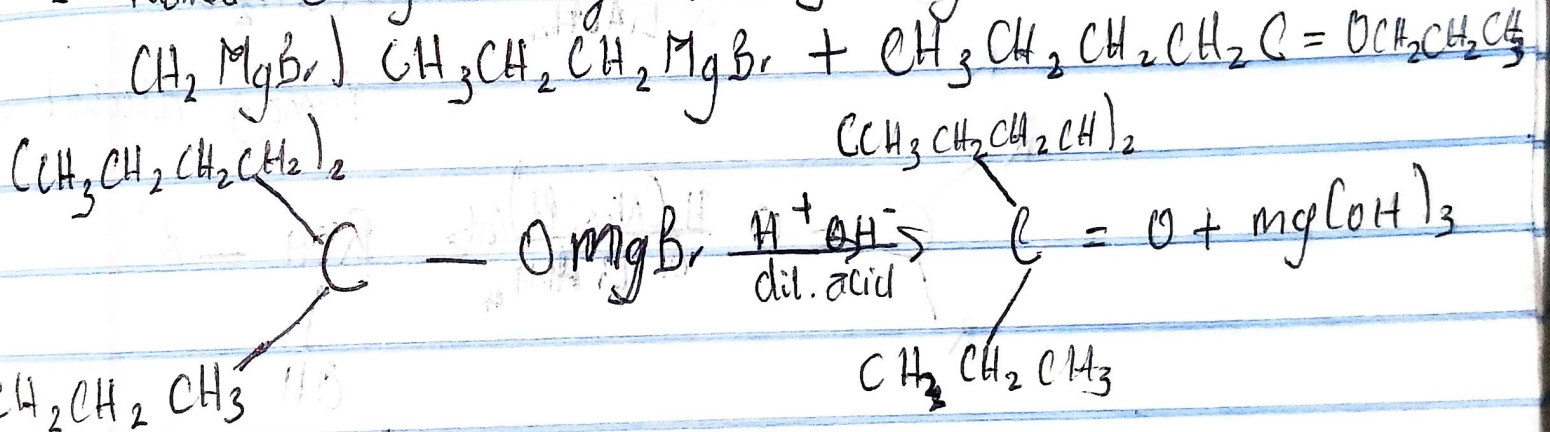 CH₂ MgBr) CH₃CH₂CH₂MgBr + CH₃CH₂CH₂CH₂C = OCH₂CH₂CH₃
(CH₃CH₂CH₂CH₂)₂ (CH₃CH₂CH₂CH)₂
C — OMgBr H⁺OH⁻ C = O + mg(OH)₃
dil. acid
CH₂CH₂CH₃ CH₂CH₂CH₃